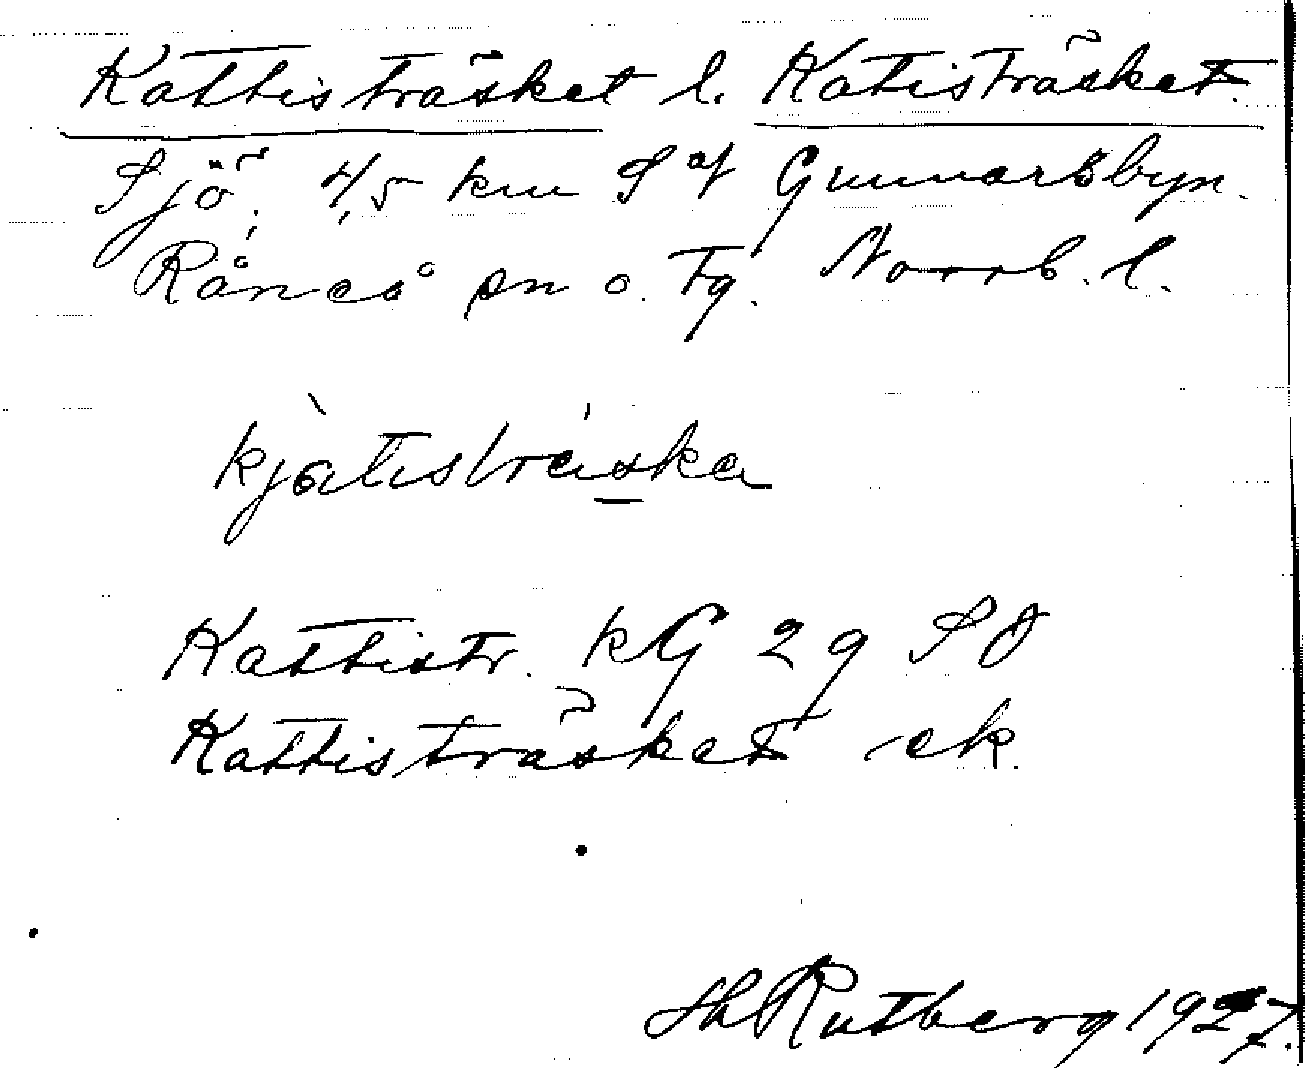 Kattisträsket l. Katisträsket.
Sjö, 4,5 km S af Gunnarsbyn.
Råneå sn o. tg. Norrb. l.
kjàtistráska
Kattistr. kG 29 SO
Kattisträsket ek.
Hh Rutberg 1927.